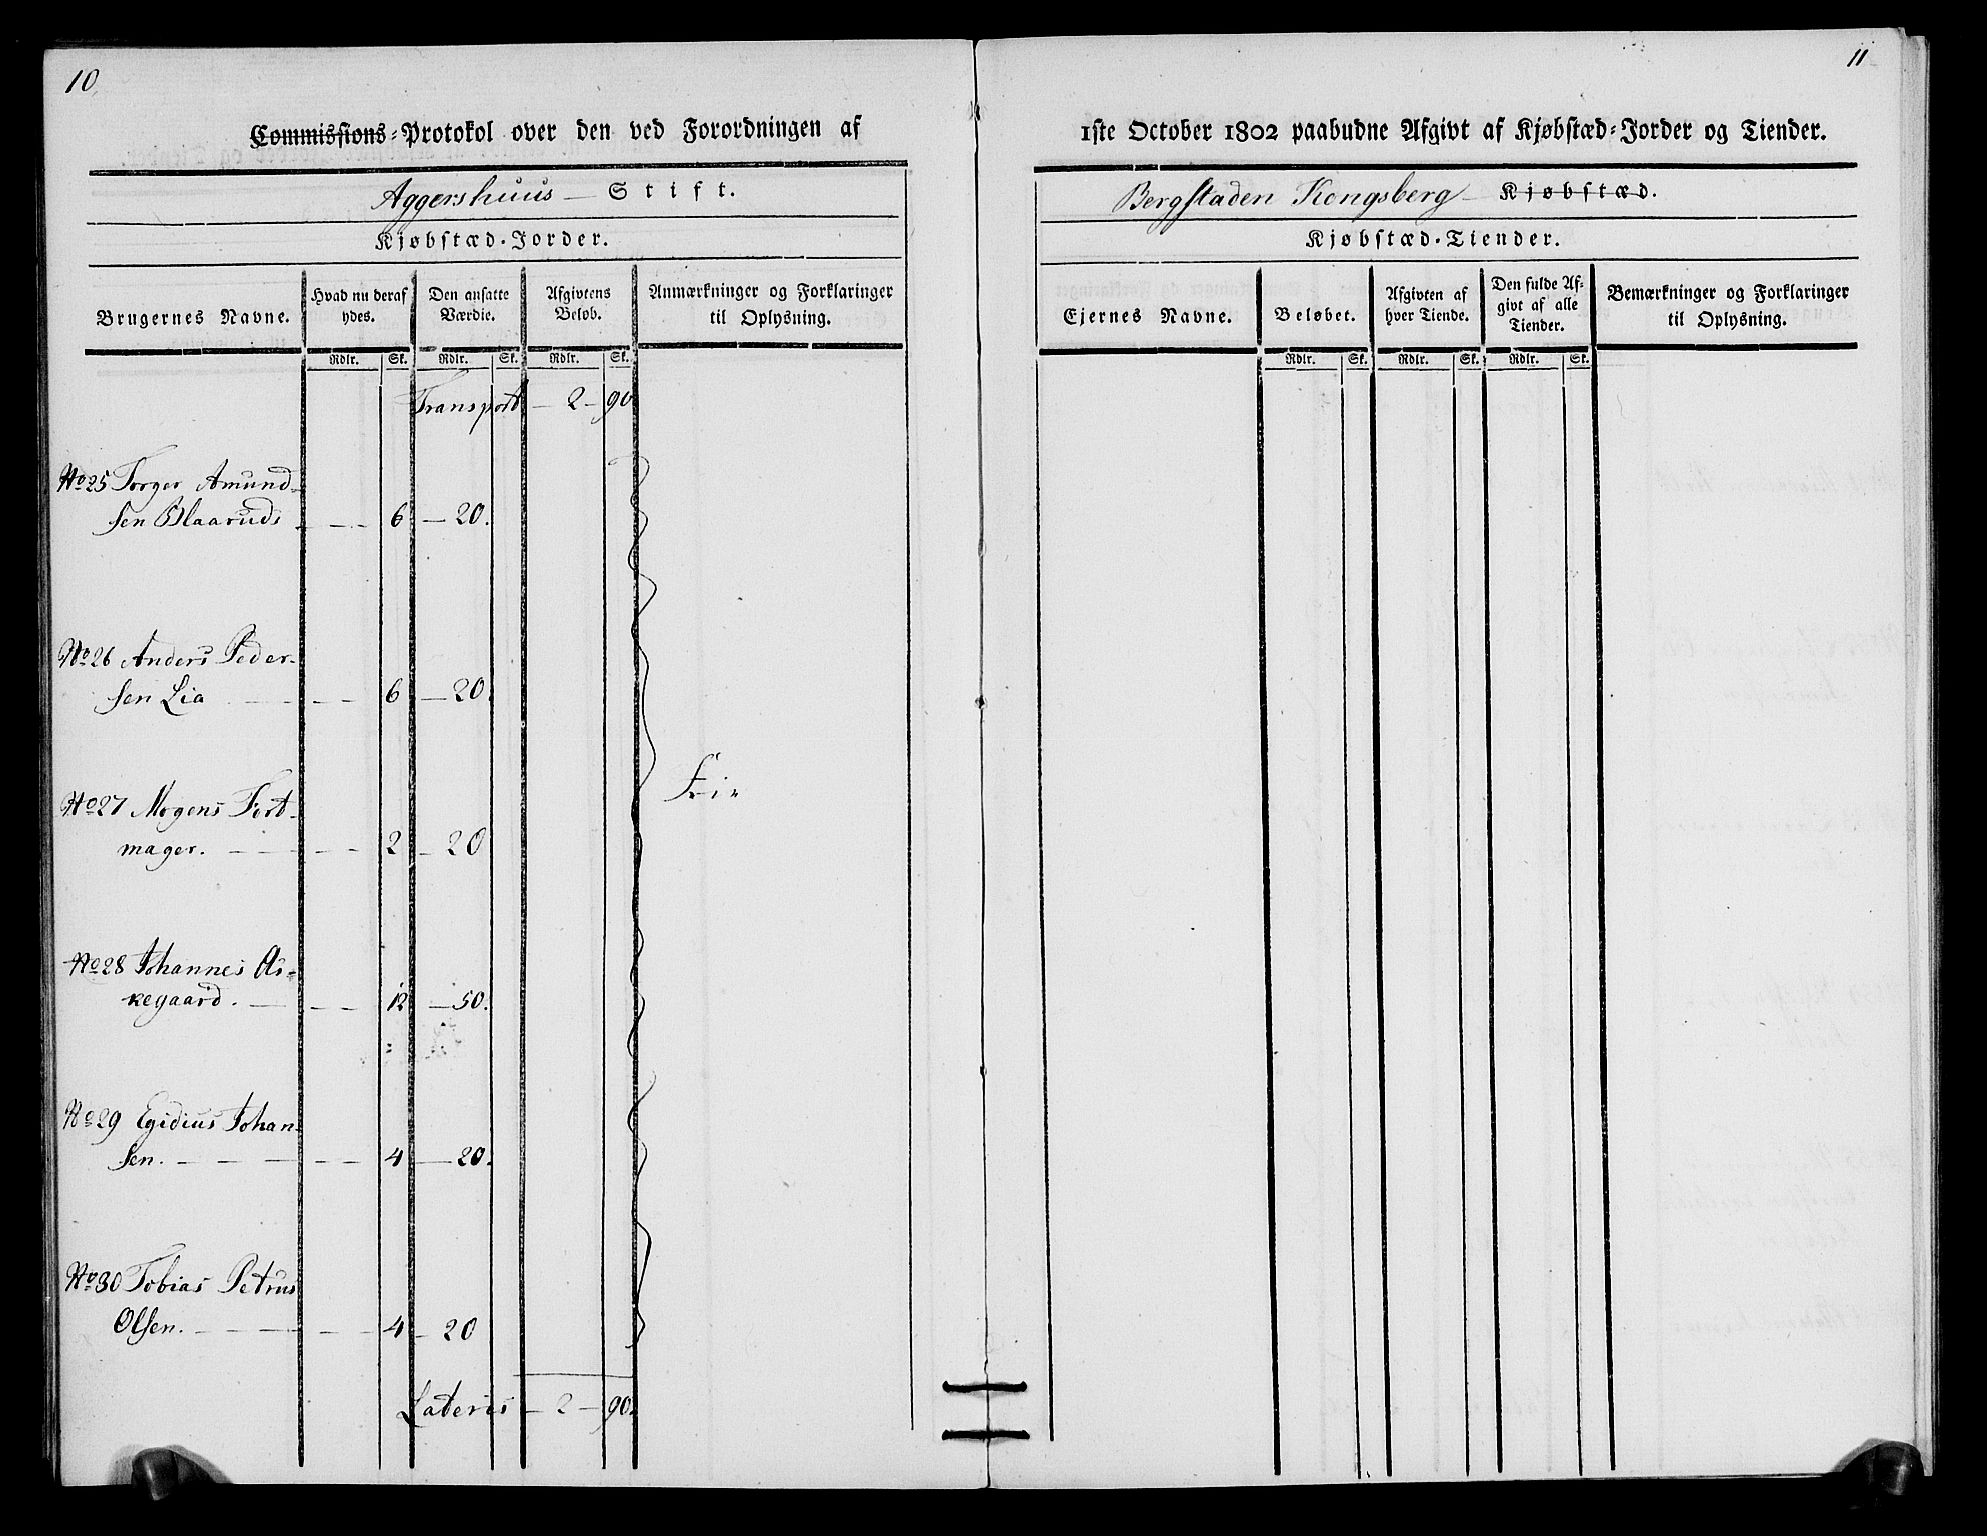 10
Commissions-Protokol over den ved Forordningen af
Aggershuus — Stift.
Kjøbstæd-Jorder.
Brugernes Navne.
Hvad nu deraf
ydes.
Den ansatte
Værdie.
Afgivtens
Beløb.
Anmærkninger og Forklaringer
til Oplysning.
Rdlr. Sk. Rdlr. Sk. Rdlr. Sk.
Transport — 2 — 90
No 25 Torger Amund-
sen Blaaruds — — — 6 — 20.
No 26 Anders Peder-
sen Lia — — — — 6 — 20.
Fri
No 27 Mogens Fort-
mager. — — — — 2 — 20
No 28 Johannes As-
kegaard. — — — 12 — 50.
No 29 Egidius Johan-
sen. — — — — — 4 — 20.
No 30 Tobias Petrus
Olsen. — — — — — 4 — 20
Lateris — 2 — 90.
11
1ste October 1802 paabudne Afgivt af Kjøbstæd-Jorder og Tiender.
Bergstaden Kongsberg — Kjøbstæd.
Kjøbstæd-Tiender.
Ejernes Navne.
Beløbet.
Afgivten af
hver Tiende.
Den fulde Af-
givt af alle
Tiender.
Bemærkninger og Forklaringer
til Oplysning.
Rdlr. Sk. Rdlr. Sk. Rdlr. Sk.